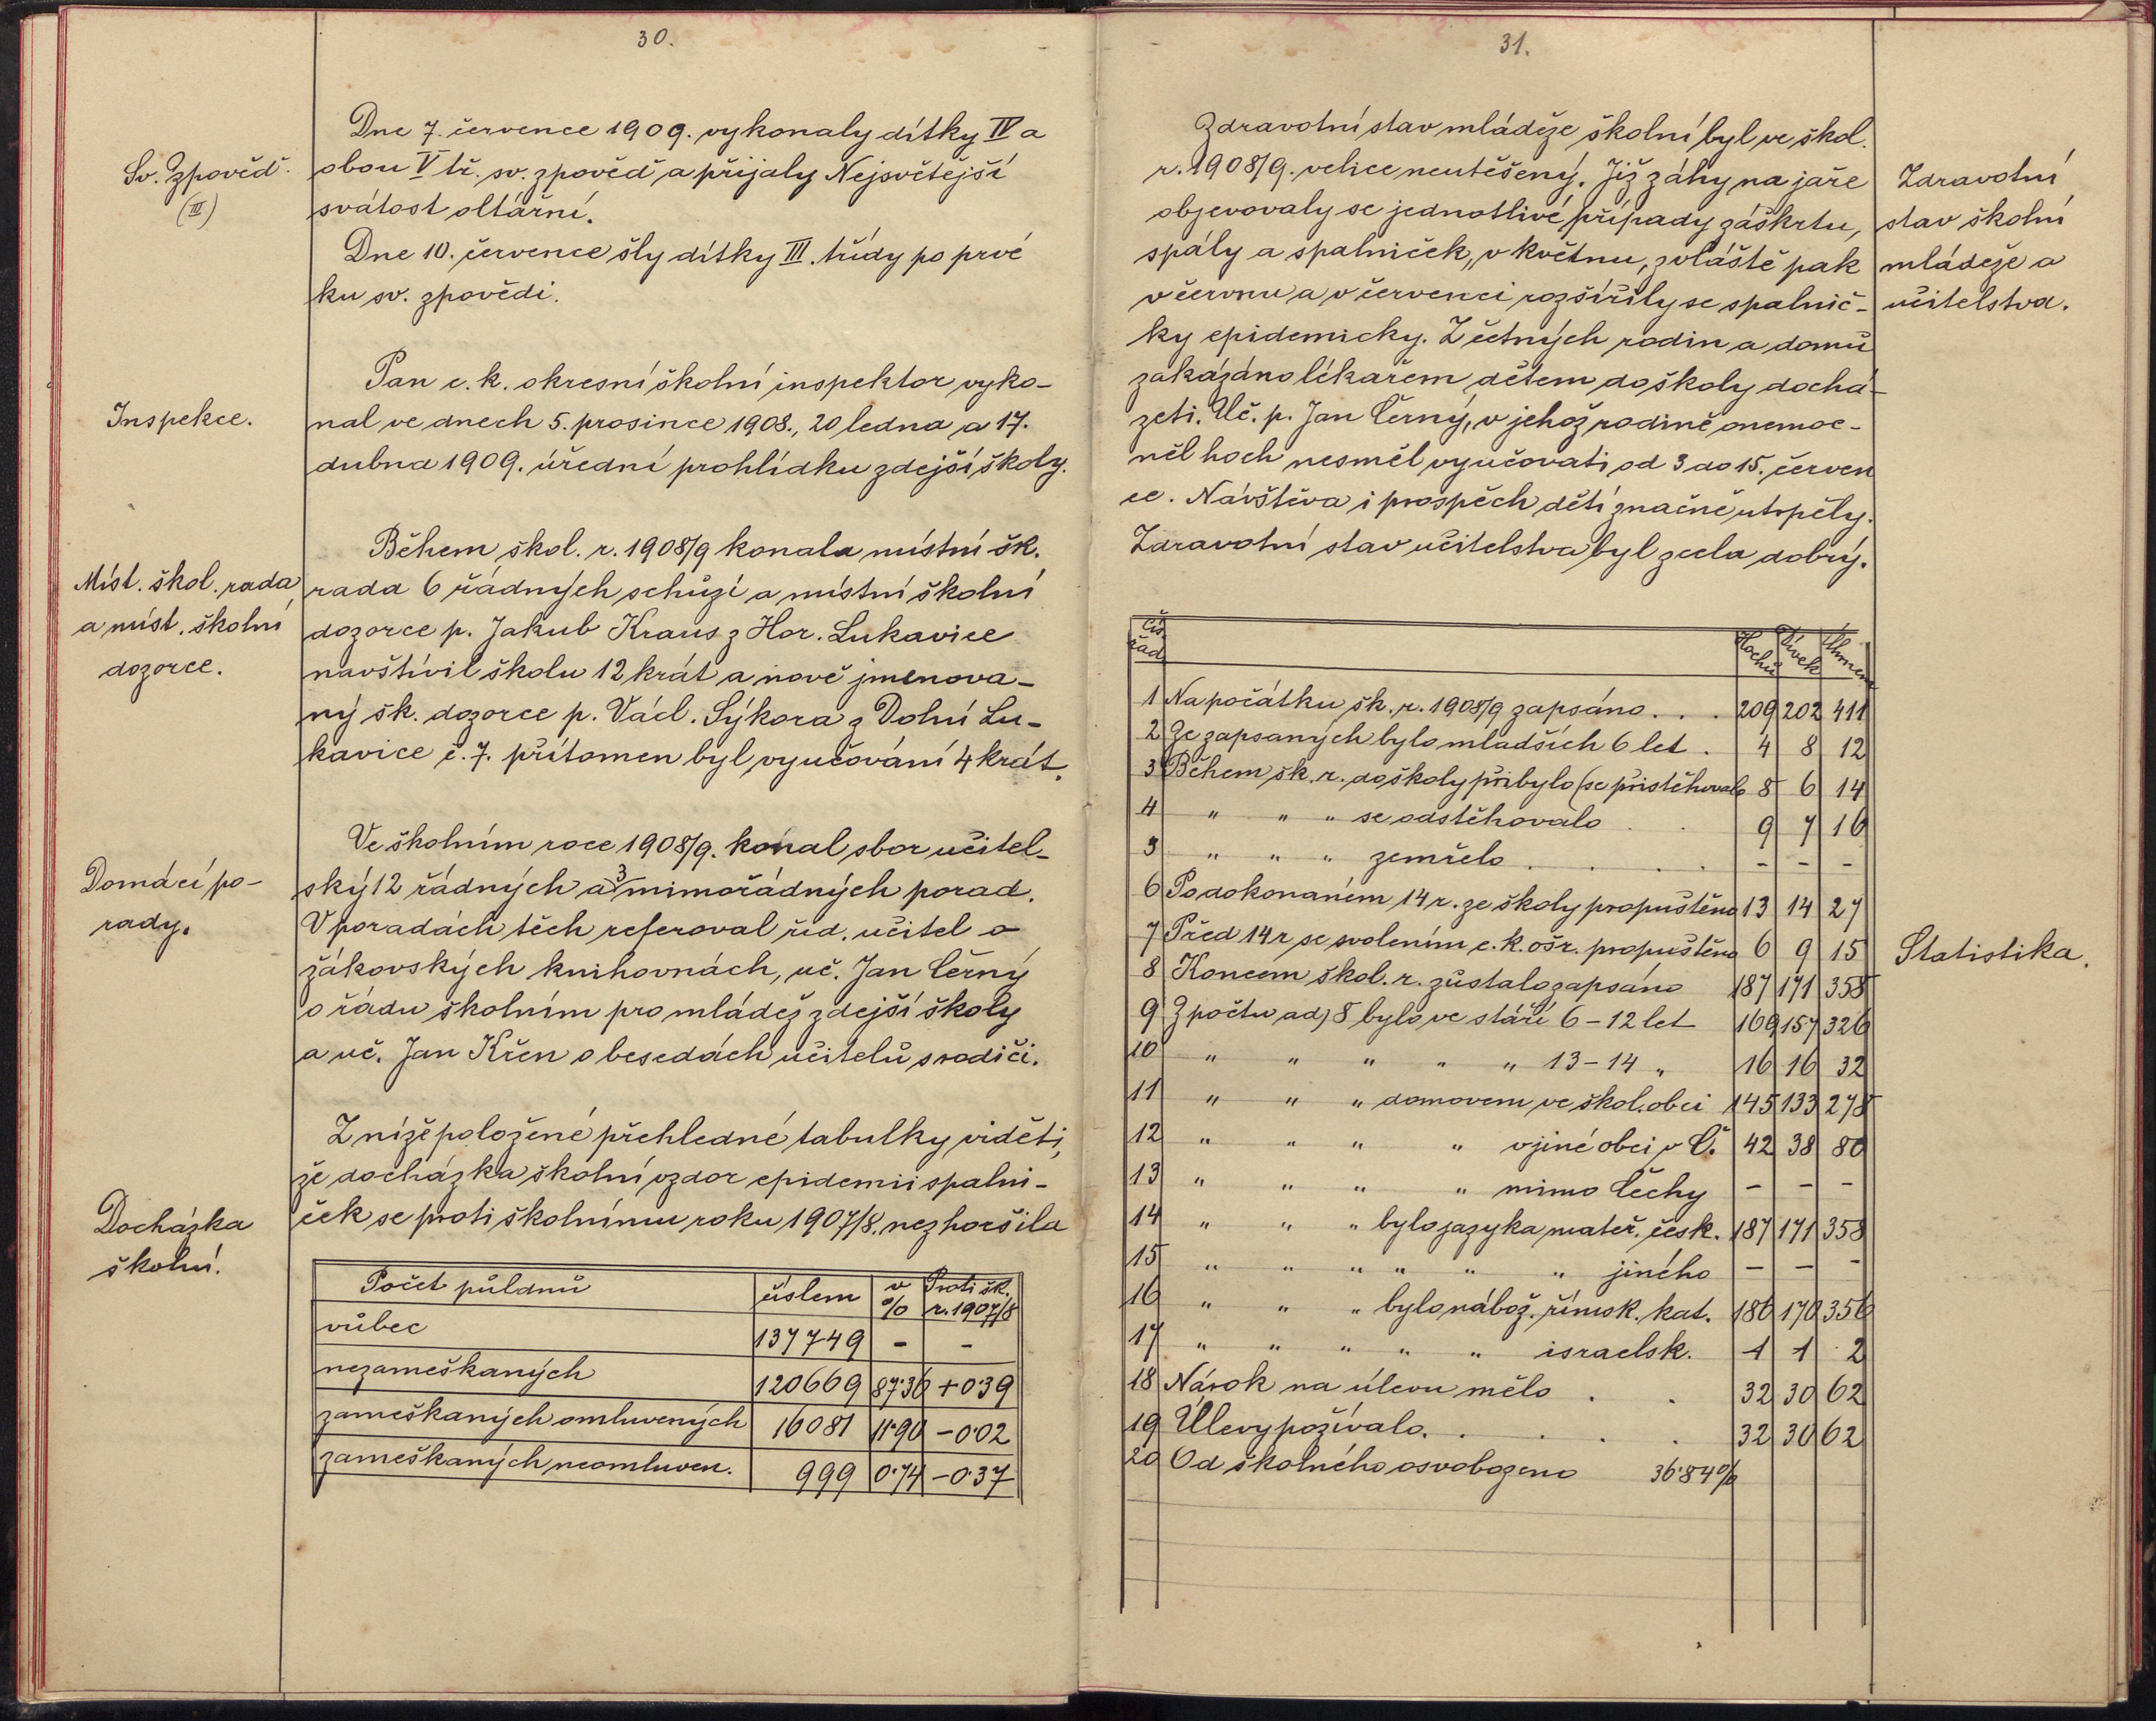 30.
Sv. Zpověď.
(III)
Dne 7. července 1909. vykonaly dítky IV a
obou V tř. sv. zpověď a přijaly Nejsvětější
svátost oltářní.
Dne 10. července šly dítky III. třídy po prvé
ku sv. zpovědi.
Inspekce.
Pan c. k. okresní školní inspektor vyko-
nal ve dnech 5. prosince 1908., 20 ledna a 17.
dubna 1909. úřední prohlídku zdejší školy.
Míst. škol. rada
a míst. školní
dozorce.
Během škol. r. 1908/9 konala místní šk.
rada 6 řádných schůzí a místní školní
dozorce p. Jakub Kraus z Hor. Lukavice
navštívil školu 12 krát a nově jmenova-
ný šk. dozorce p. Václ. Sýkora z Dolní Lu-
kavice č. 7. přítomen byl vyučování 4 krát.
Domácí po-
rady.
Ve školním roce 1908/9. konal sbor učitel-
ský 12 řádných a 3 mimořádných porad.
V poradách těch referoval říd. učitel o
žákovských knihovnách, uč. Jan Černý
o řádu školním pro mládež zdejší školy
a uč. Jan Křen o besedách učitelů s rodiči.
Docházka
školní.
Z níže položené přehledné tabulky viděti,
že docházka školní vzdor epidemii spalni-
ček se proti školnímu roku 1907/8. nezhoršila
Počet půldnů číslem v % Proti šk. r. 1907/8
vůbec 137749 - -
nezameškaných 120669 87·36 +0·39
zameškaných omluvených 16081 11·90 -0·02
zameškaných neomluven. 999 0·74 -0·37
31.
Zdravotní stav mládeže školní byl ve škol.
r. 1908/9. velice neutěšený. Již záhy na jaře
objevovaly se jednotlivé případy záškrtu,
spály a spalniček, v květnu, zvláště pak
v červnu a v červenci rozšířily se spalnič-
ky epidemicky. Z četných rodin a domů
zakázáno lékařem dětem do školy dochá-
zeti. Uč. p. Jan Černý, v jehož rodině onemoc-
něl hoch nesměl vyučovati od 3 do 15. červen
ce. Návštěva i prospěch dětí značně utrpěly.
Zdravotní stav učitelstva byl zcela dobrý.
Zdravotní
stav školní
mládeže a
učitelstva.
Čís. řad. Hochů Dívek Úhrnem
1 Na počátku šk. r. 1908/9 zapsáno . . . 209 202 411
2 Ze zapsaných bylo mladších 6 let . 4 8 12
3 Během šk. r. do školy přibylo (se přistěhovalo 8 6 14
4 " " " se odstěhovalo . . 9 7 16
5 " " " zemřelo . . . . - - -
6 Po dokonaném 14 r. ze školy propuštěno 13 14 27
7 Před 14 r se svolením c. k. ošr. propuštěno 6 9 15
8 Koncem škol. r. zůstalo zapsáno 187 171 358
9 Z počtu ad) 8 bylo ve stáří 6-12 let 169 157 326
10 " " " " " 13-14 " 16 16 32
11 " " " domovem ve škol. obci 145 133 278
12 " " " " v jiné obci v Č. 42 38 80
13 " " " " mimo Čechy - - -
14 " " " bylo jazyka mateř. česk. 187 171 358
15 " " " " " " jiného - - -
16 " " " bylo nábož. římsk. kat. 186 170 356
17 " " " " " israelsk. 1 1 2
18 Nárok na úlevu mělo . . 32 30 62
19 Úlevy požívalo. . . . . 32 30 62
20 Od školného osvobozeno 36·84%
Statistika.